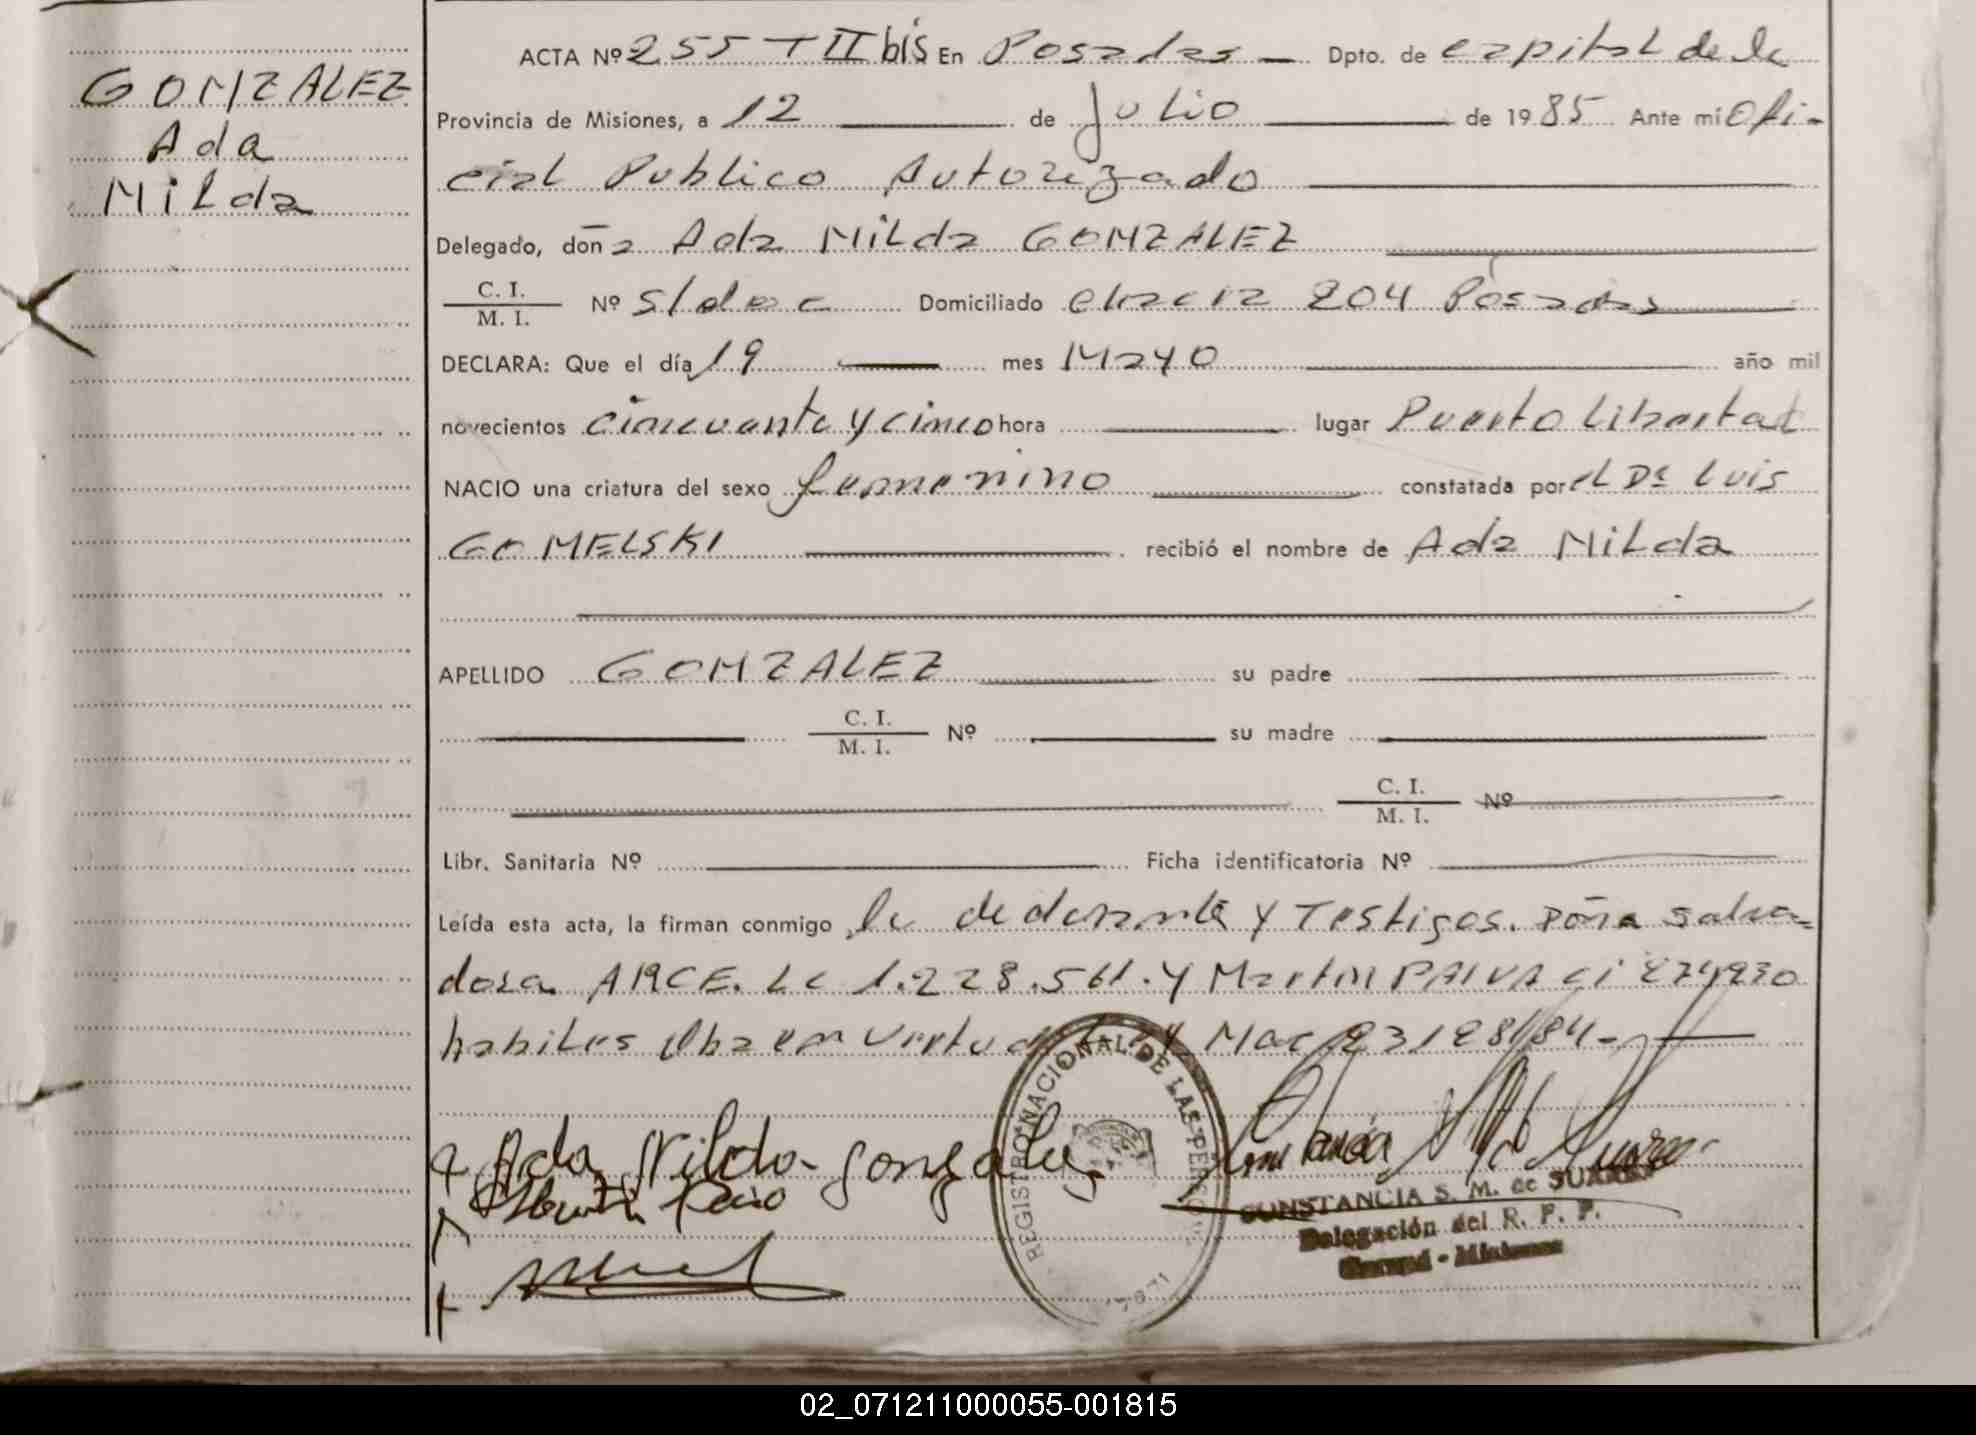 GONZALEZ
Ada
Milda
ACTA Nº 255 T II bis En Posadas — Dpto. de capital de la
Provincia de Misiones, a 12 de Julio de 1985 Ante mi Ofi-
cial Publico Autorizado
Delegado, don a Ada Milda GONZALEZ
C. I.
M. I. Nº s/doc Domiciliado chacra 204 Posadas
DECLARA: Que el día 19 mes Mayo año mil
novecientos cincuenta y cinco hora lugar Puerto Libertad
NACIO una criatura del sexo femenino constatada por el Dr Luis
GOMELSKI recibió el nombre de Ada Milda
APELLIDO GONZALEZ su padre
C. I.
M. I. Nº su madre
C. I.
M. I. Nº
Libr. Sanitaria Nº Ficha identificatoria Nº
Leída esta acta, la firman conmigo la declarante y Testigos. Doña Salva-
dora ARCE. LC 1.228.561. y Martin PAIVA ci
habiles en Ley Nac 23128/84.-
Ada Milda Gonzalez
REGISTRO NACIONAL DE LAS PERSONAS
CONSTANCIA S. M. de SUAREZ
Delegación del R. P. P.
Misiones
02_071211000055-001815